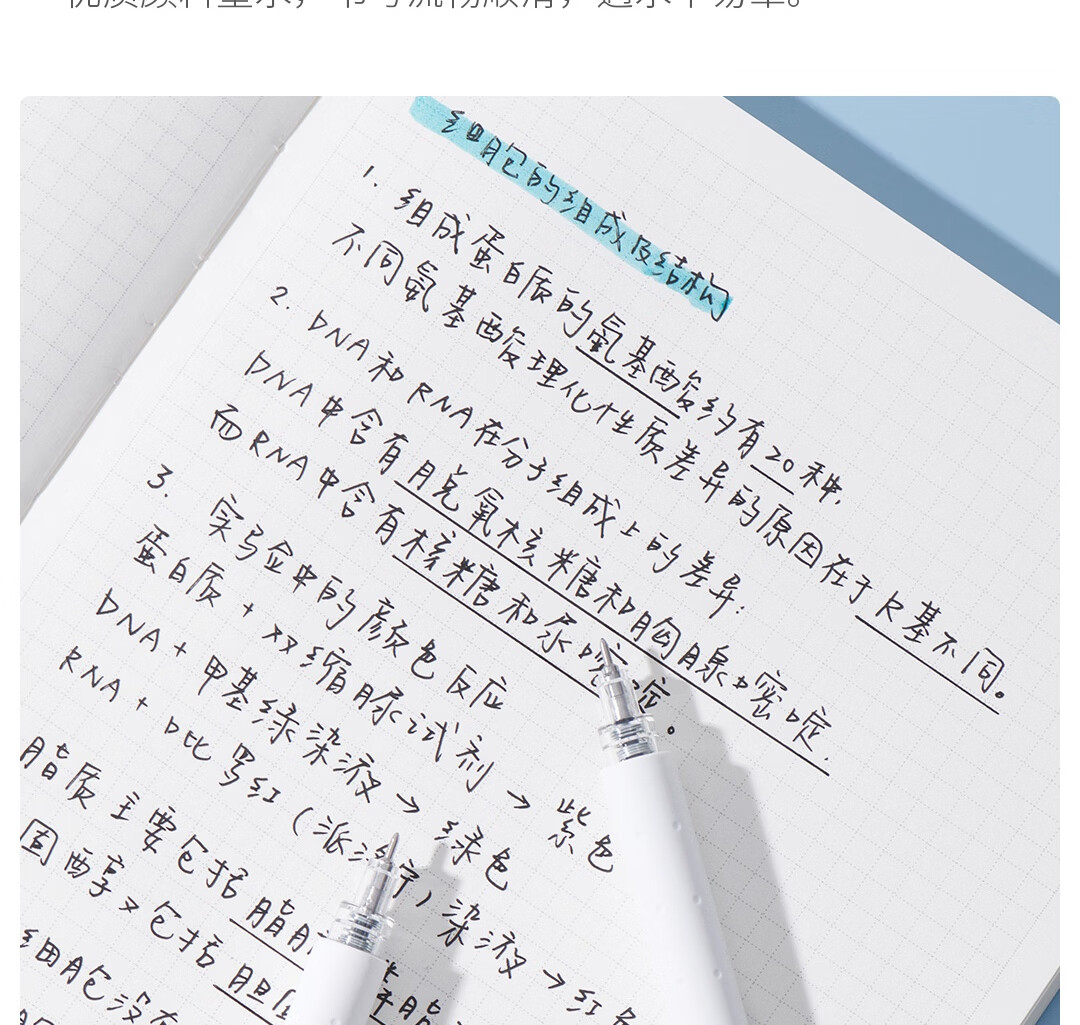 细胞的组成及结构
1. 组成蛋白质的氨基酸约有20种,
不同氨基酸理化性质差异的原因在于R基不同。
2. DNA和RNA在分子组成上的差异:
DNA中含有脱氧核糖和胸腺嘧啶.
而RNA中含有核糖和尿嘧啶。
3. 实验中的颜色反应
蛋白质+双缩脲试剂→紫色
DNA+甲基绿染液→绿色
RNA+吡罗红(派洛宁)染液→红色
脂质主要包括脂肪
固醇又包括胆
细胞没有